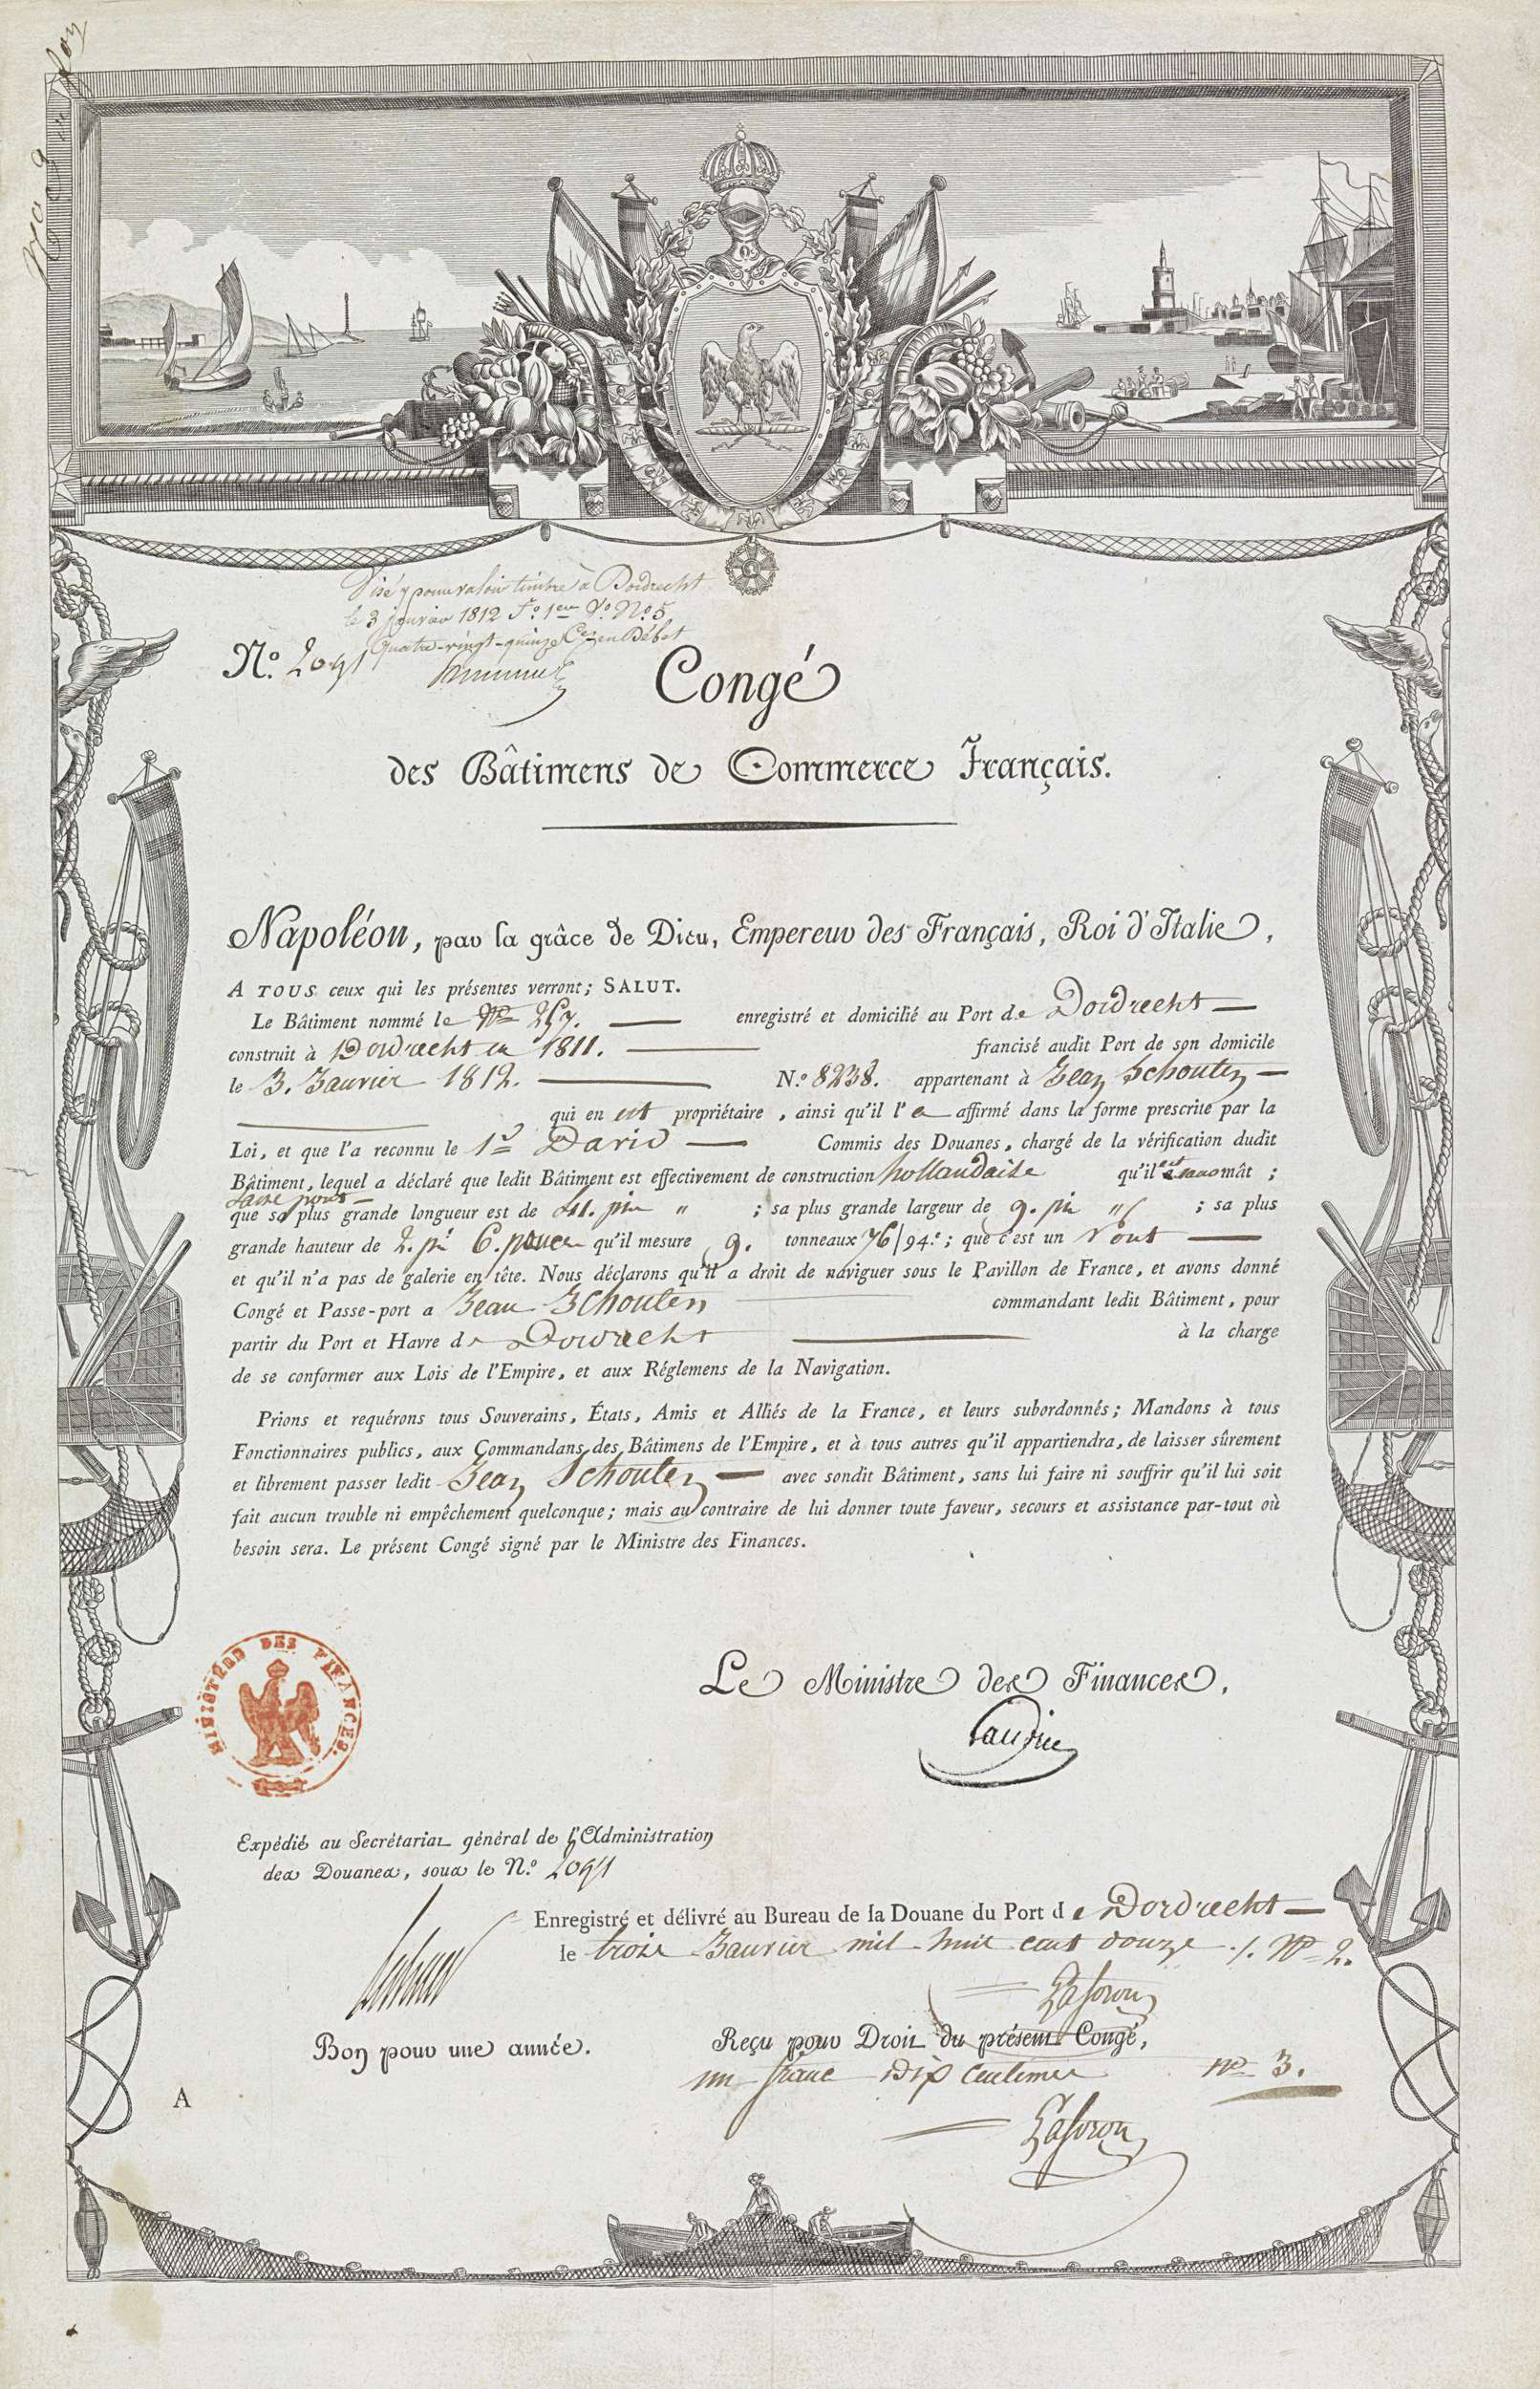 Visé pour valoir timbre à Dordrecht
le 3 janvier 1812 Fo. 1er Vo. No. 5
Quatre-vingt-quinze Ces en Débet
No. 2091
Congé
des Bâtimens de Commerce Français.
Napoléon, par la grâce de Dieu, Empereur des Français, Roi d'Italie,
A TOUS ceux qui les présentes verront; SALUT.
Le Bâtiment nommé le No 257. enregistré et domicilié au Port de Dordrecht
construit à Dordrecht en 1811. francisé audit Port de son domicile
le 3. Janvier 1812. N.o 8238. appartenant à Jean Schouten
qui en est propriétaire, ainsi qu'il l'a affirmé dans la forme prescrite par la
Loi, et que l'a reconnu le Sr David Commis des Douanes, chargé de la vérification dudit
Bâtiment, lequel a déclaré que ledit Bâtiment est effectivement de construction hollandaise qu'il est sans mât;
sans pont
que sa plus grande longueur est de 41. pi " ; sa plus grande largeur de 9. pi " ; sa plus
grande hauteur de 2. pi 6. pouces qu'il mesure 9. tonneaux 76/94.e; que c'est un
et qu'il n'a pas de galerie en tête. Nous déclarons qu'il a droit de naviguer sous le Pavillon de France, et avons donné
Congé et Passe-port a Jean Schouten commandant ledit Bâtiment, pour
partir du Port et Havre de Dordrecht à la charge
de se conformer aux Lois de l'Empire, et aux Réglemens de la Navigation.
Prions et requérons tous Souverains, États, Amis et Alliés de la France, et leurs subordonnés; Mandons à tous
Fonctionnaires publics, aux Commandans des Bâtimens de l'Empire, et à tous autres qu'il appartiendra, de laisser sûrement
et librement passer ledit Jean Schouten avec sondit Bâtiment, sans lui faire ni souffrir qu'il lui soit
fait aucun trouble ni empêchement quelconque; mais au contraire de lui donner toute faveur, secours et assistance par-tout où
besoin sera. Le présent Congé signé par le Ministre des Finances.
MINISTÈRE DES FINANCES.
Le Ministre des Finances,
Gaudin
Expédié au Secrétariat général de l'Administration
des Douanes, sous le N.o 2091
Enregistré et délivré au Bureau de la Douane du Port de Dordrecht
le trois Janvier mil huit cent douze ./. No 2.
Bon pour une année.
Reçu pour Droit du présent Congé,
un franc Dix Centimes No 3.
A